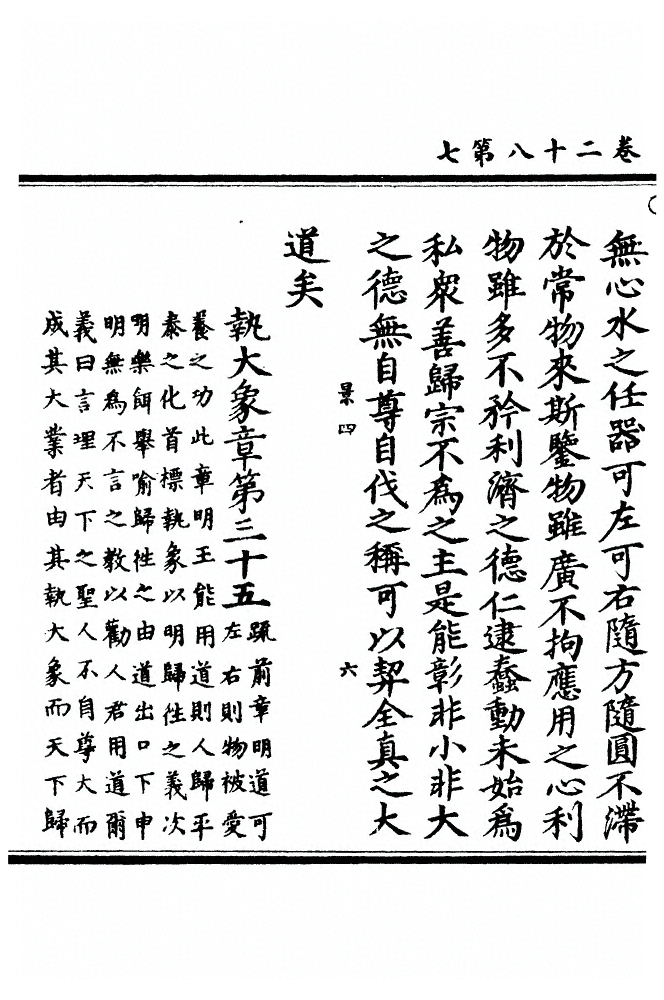 卷二十八第七
無心水之任器可左可右隨方隨圓不滯
於常物來斯鑒物雖廣不拘應用之心利
物雖多不矜利濟之德仁逮蠢動未始為
私衆善歸宗不為之主是能彰非小非大
之德無自尊自伐之稱可以契全真之大
景四 六
道矣
執大象章第三十五疏前章明道可
左右則物被愛
養之功此章明王能用道則人歸平
泰之化首標執象以明歸徃之義次
明樂餌舉喻歸徃之由道出口下申
明無為不言之教以勸人君用道爾
義曰言理天下之聖人不自尊大而
成其大業者由其執大象而天下歸